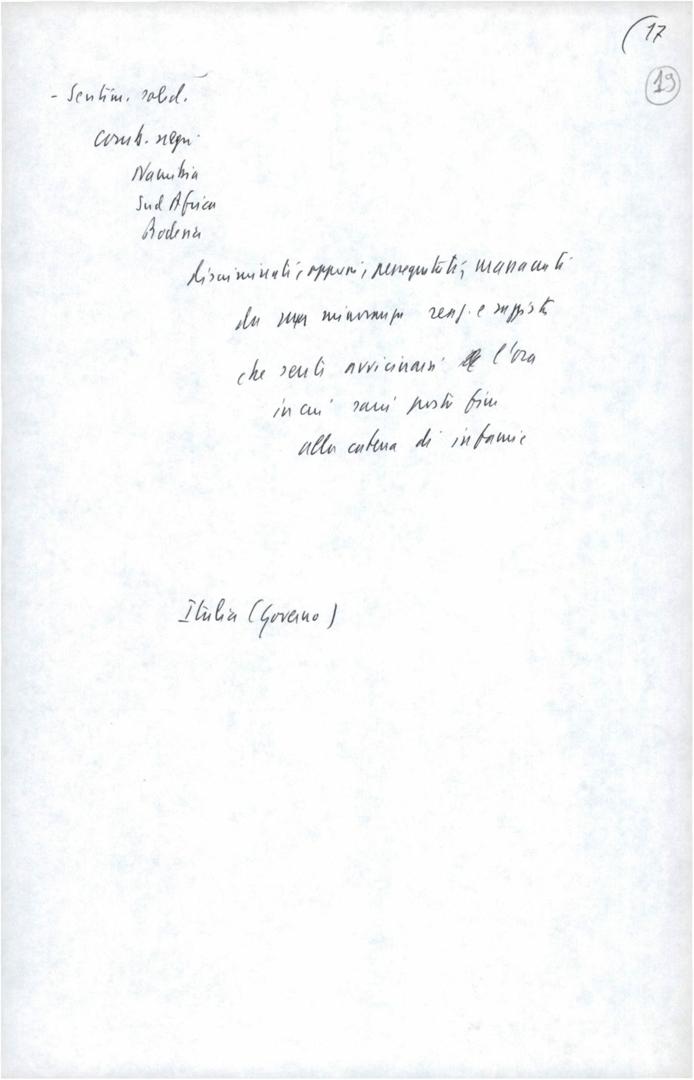 (17
19
- Sentim. solid.
comb. negri
Namibia
Sud Africa
Rodesia
discriminati, oppressi, perseguitati, massacrati
da una minoranza e razzista
che senti avvicinarsi l'ora
in cui sarà posto fine
alla catena di infamie
Italia (Governo)